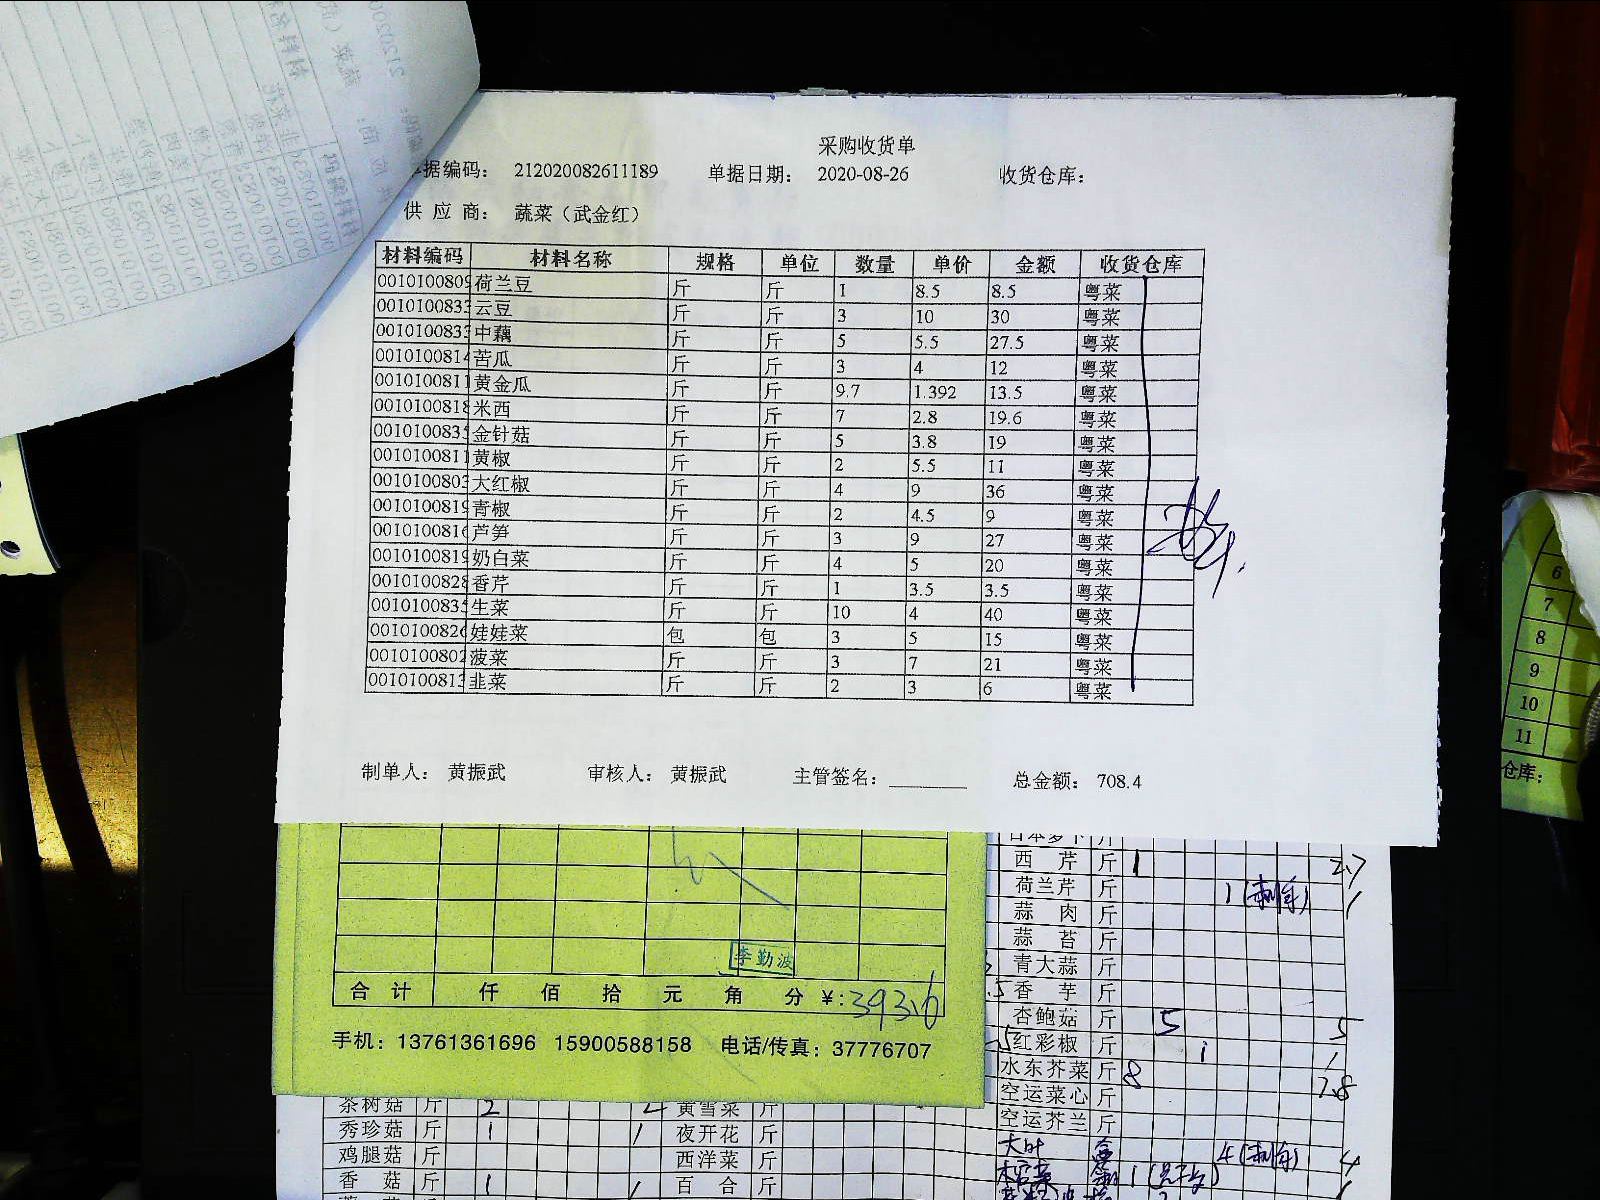 采购收货单
据编码： 212020082611189 单据日期： 2020-08-26 收货仓库：
供 应 商： 蔬菜（武金红）
材料编码 材料名称 规格 单位 数量 单价 金额 收货仓库
0010100809 荷兰豆 斤 斤 1 8.5 8.5 粤菜
001010083 云豆 斤 斤 3 10 30 粤菜
001010083 中藕 斤 斤 5 5.5 27.5 粤菜
0010100814 苦瓜 斤 斤 3 4 12 粤菜
0010100811 黄金瓜 斤 斤 9.7 1.392 13.5 粤菜
0010100818 米西 斤 斤 7 2.8 19.6 粤菜
001010083 金针菇 斤 斤 5 3.8 19 粤菜
0010100811 黄椒 斤 斤 2 5.5 11 粤菜
0010100803 大红椒 斤 斤 4 9 36 粤菜
0010100819 青椒 斤 斤 2 4.5 9 粤菜
0010100816 芦笋 斤 斤 3 9 27 粤菜
0010100819 奶白菜 斤 斤 4 5 20 粤菜
0010100828 香芹 斤 斤 1 3.5 3.5 粤菜
001010083 生菜 斤 斤 10 4 40 粤菜
0010100826 娃娃菜 包 包 3 5 15 粤菜
0010100802 菠菜 斤 斤 3 7 21 粤菜
001010081 韭菜 斤 斤 2 3 6 粤菜
制单人： 黄振武 审核人： 黄振武 主管签名： 总金额： 708.4
6
7
8
9
10
11
仓库：
李勤波
合 计 仟 佰 拾 元 角 分 ¥: 393.6
手机：13761361696 15900588158 电话/传真：37776707
西 芹 斤 1 2.7
荷兰芹 斤 1 1
蒜 肉 斤
蒜 苔 斤
青大蒜 斤
香 芋 斤
杏鲍菇 斤 5 5
红彩椒 斤 1 1
水东芥菜 斤 8 7.8
空运菜心 斤
空运芥兰 斤
大叶 4 4
茶树菇 斤 2 2 黄雪菜 斤
秀珍菇 斤 1 1 夜开花 斤
鸡腿菇 斤 西洋菜 斤
香 菇 斤 1 1 百 合 斤